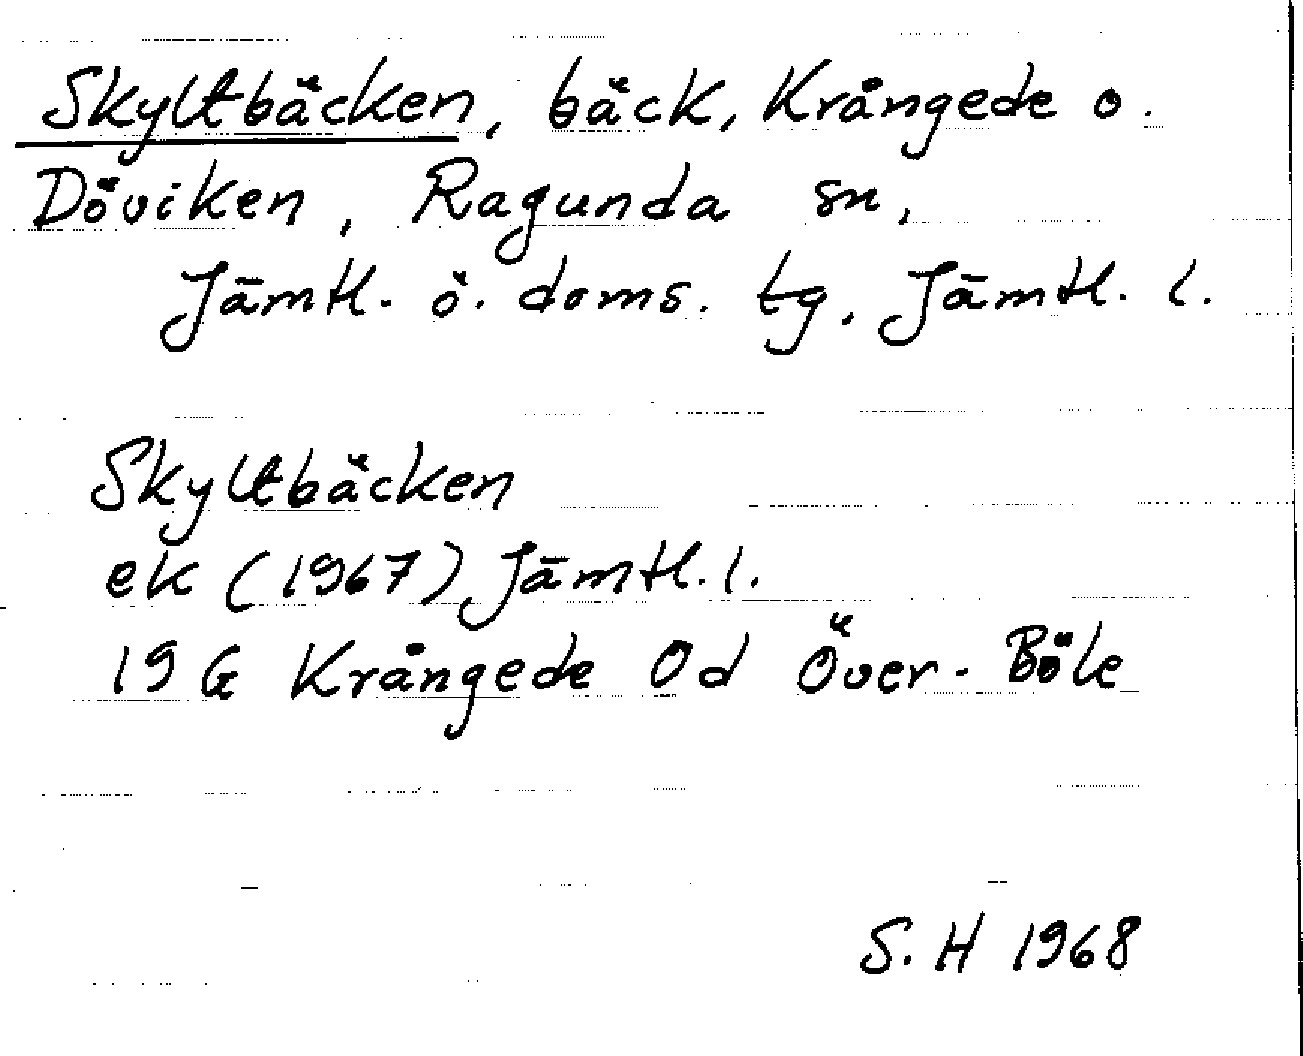 Skyltbäcken, bäck, Krångede o.
Döviken, Ragunda sn,
Jämtl. ö. doms. tg, Jämtl. l.
Skyltbäcken
ek (1967) Jämtl. l.
19 G Krångede 0d Över-Böle
S. H 1968